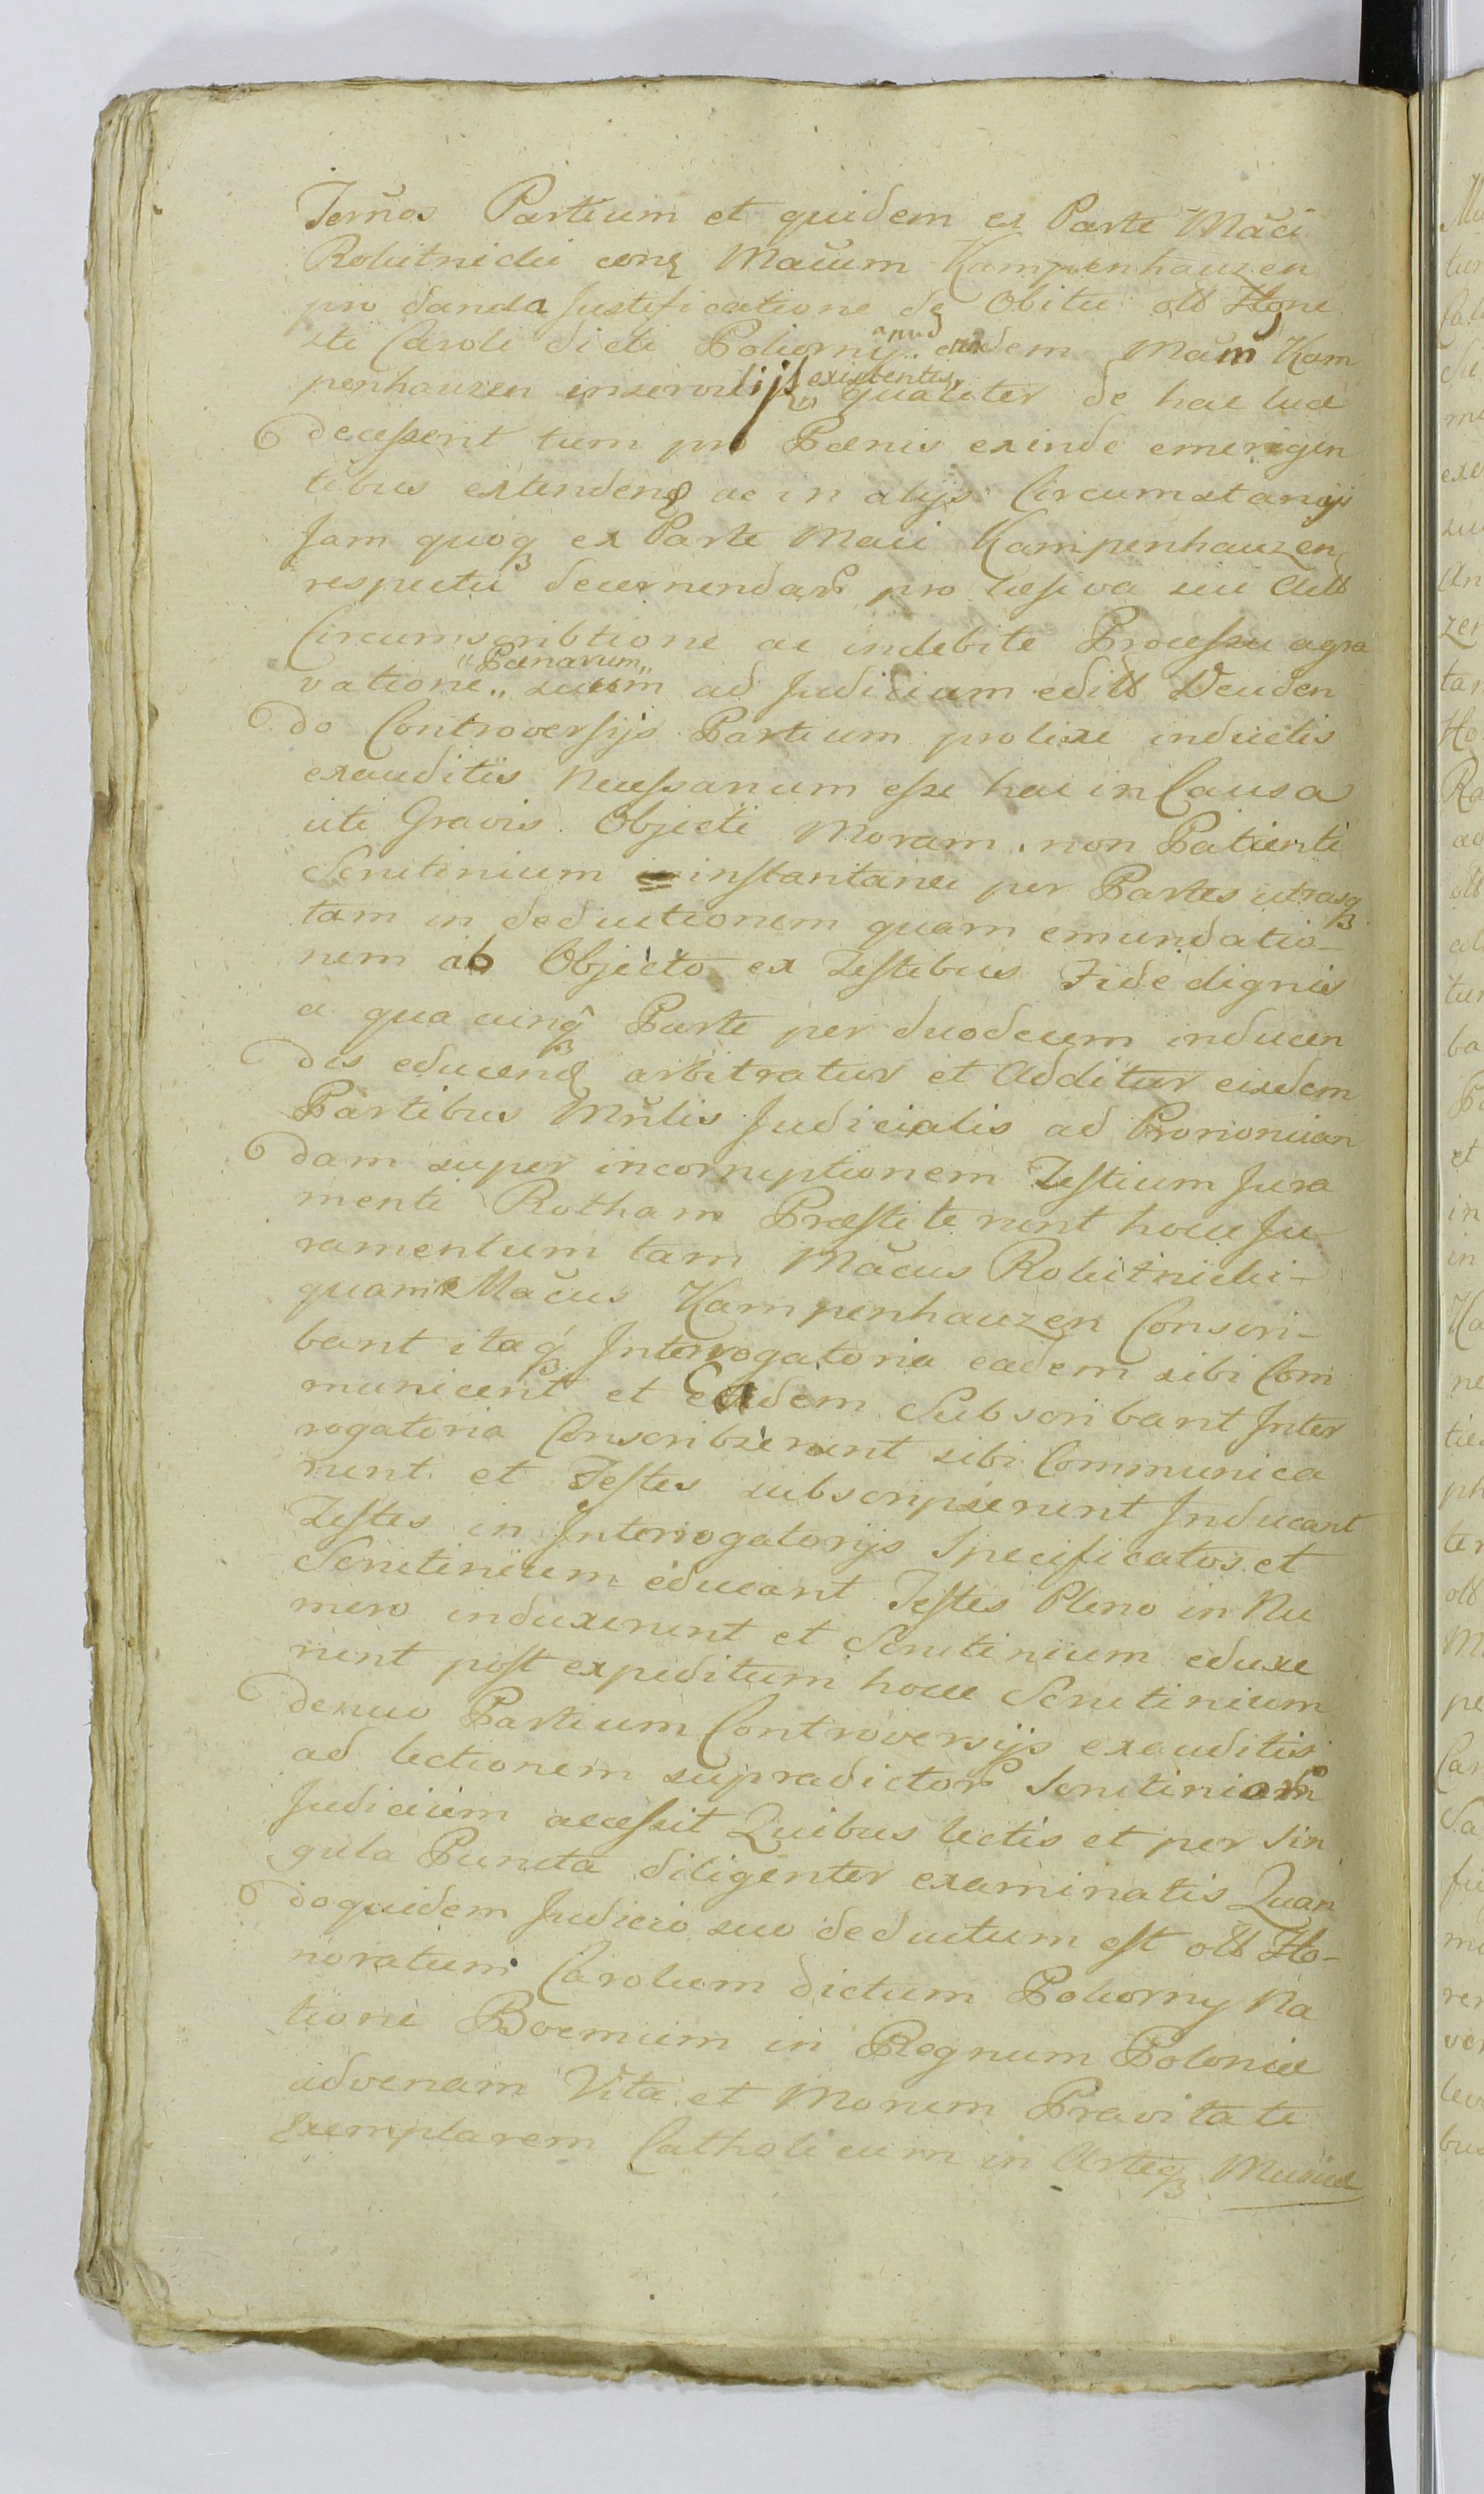 Termos Partium et quidem ex Parte Macī
Robitnicki conq̃ Macum Kampenhauzen
pro danda Justificatione de Obitu olt Hone
sti Caroli dicti Pokorny apud eundem Macm Kam
penhauzen in servitijs existentis qualiter de hac luce
decesserit tum pro Pœnis exinde emerigen
tibus extendend ac in alijs Circumstancijs
Jam quoq ex Parte Maci Kampenhauzen
respectu decernendar pro læsiva sui Actt
Circumscribtione ac indebite Processu agra
vatione „Pœnarum„ suum ad Judicium editt Deuden
do Controversijs Partium prolixe inductis
exauditis Necessarium esse hac in Causa
uti Gravis Objecti Moram non Patienti
Scrutinium instantanee per Partes utrasq
tam in deductionem quam emundatio-
nem ab Objecto ex Testibus Fide dignis
a qua cunq Parte per duodecem inducen
dis educend arbitratur et Additur eisdem
Partibus Mñlis Judicialis ad Prononcian
dam super incorruptionem Testium Jura
menti Rotham Præstiterunt hocce Ju
ramentum tam Macus Robitnicki-
quam Macus Kampenhauzen Conscri-
bant itaq Interrogatoria eadem sibi Com
municent et Eadem Subscribant Inter
rogatoria Conscribserunt sibi Communica
runt et Testes subscripserunt Inducant
Testes in Interrogatorijs Specificatos et
Scrutinium educant Testes Pleno in Nu
mero induxerunt et Scrutinium eduxe
runt post expeditum hocce Scrutinium
denuo Partium Controversijs exauditis
ad lectionem supradictor Scrutiniorm
Judicium accessit Quibus lectis et per Sin
gula Puncta diligenter examinatis Quan
doquidem Judicio suo deductum est olt Ho-
noratum Carolum dictum Pokorny Na
tione Boemum in Regnum Poloniæ
advenam Vita et Morum Pravitate
Exemplarem Catholicum in Arteq Musicæ